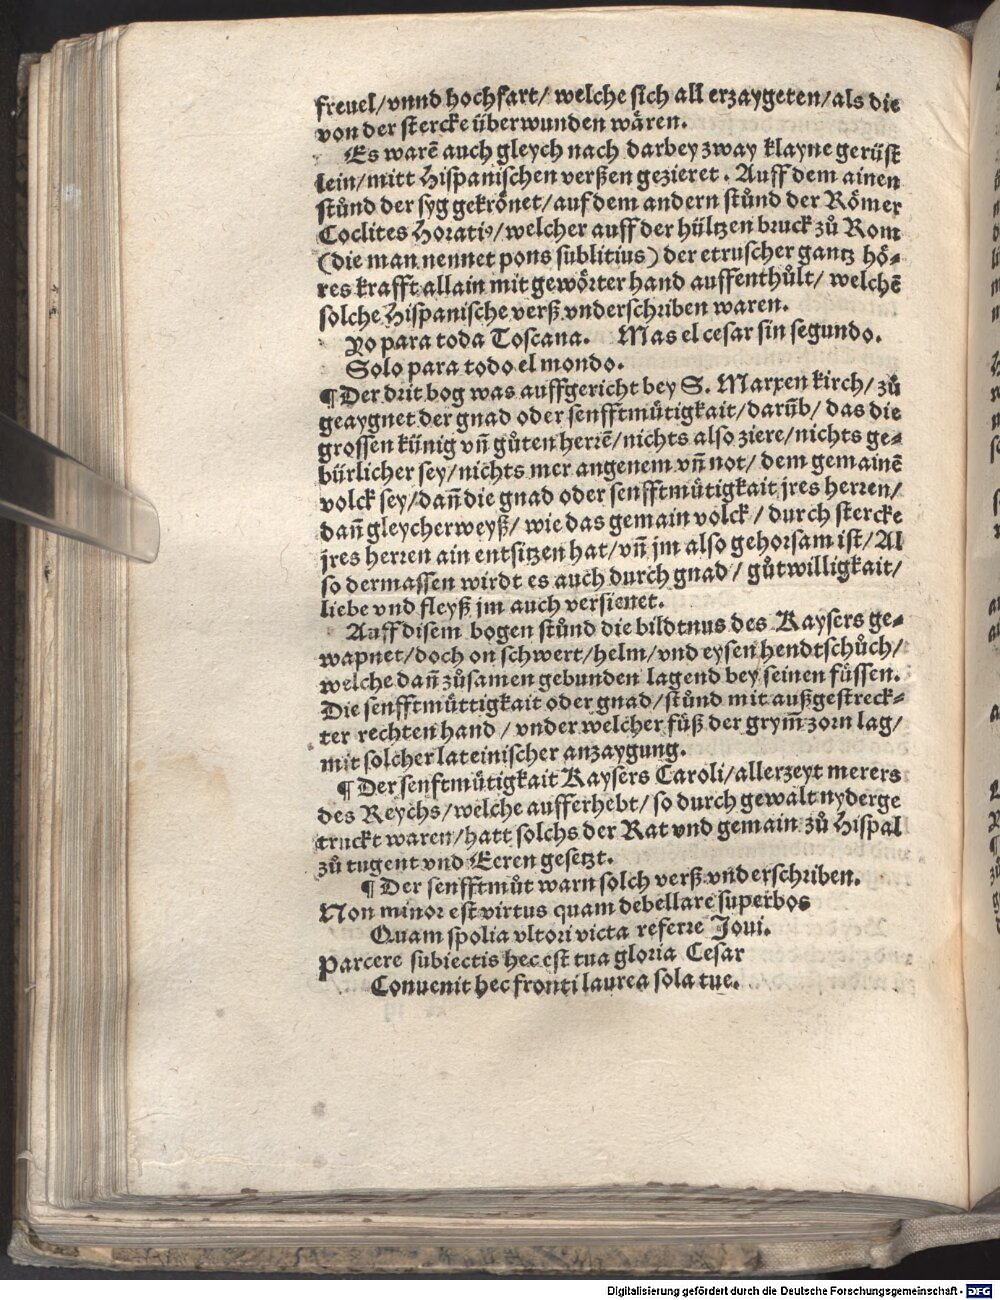 freuel/vnnd hochfart/ welche sich all erzaygeten/als die
von der stercke überwunden wären.
Es warē auch gleych nach darbey zway klayne gerüst
lein/mitt Hispanischen verßen gezieret. Auff dem ainen
stůnd der syg gekrönet/auf dem andern stůnd der Römer
Coclites Horatiꝰ/welcher auff der hültzen bruck zů Rom
(die man nennet pons sublitius) der etruscher gantz hö⸗
res krafft allain mit gewörter hand auffenthůlt/ welchē
solche Hispanische verß vnderschriben waren.
Yo para toda Toscana. Mas el cesar sin segundo.
Solo para todo el mondo.
¶Der drit bog was auffgericht bey S. Marxen kirch/ zů
geaygnet der gnad oder senfftmütigkait/darūb/ das die
grossen künig vñ gůten herrē/nichts also ziere/nichts ge⸗
bürlicher sey/nichts mer angenem vñ not/ dem gemainē
volck sey/dañ die gnad oder senfftmütigkait jres herren/
dañ gleycherweyß/ wie das gemain volck/ durch stercke
jres herren ain entsitzen hat/vñ jm also gehorsam ist/Al
so dermassen wirdt es auch durch gnad/ gůtwilligkait/
liebe vnd fleyß jm auch versienet.
Auff disem bogen stůnd die bildtnus des Kaysers ge⸗
wapnet/doch on schwert/helm/vnd eysen hendtschůch/
welche dañ zůsamen gebunden lagend bey seinen füssen.
Die senfftmüttigkait oder gnad/stůnd mit außgestreck⸗
ter rechten hand/ vnder welcher füß der grym̄ zorn lag/
mit solcher lateinischer anzaygung.
¶Der senftmütigkait Kaysers Caroli/allerzeyt merers
des Reychs/welche aufferhebt/so durch gewalt nyderge
truckt waren/hatt solchs der Rat vnd gemain zů Hispal
zů tugent vnd Eeren gesetzt.
¶Der senfftmůt warn solch verß vnderschriben.
Non minor est virtus quam debellare superbos
Quam spolia vltori victa referre Joui.
Parcere subiectis hec est tua gloria Cesar
Conuenit hec fronti laurea sola tue.
Digitalisierung gefördert durch die Deutsche Forschungsgemeinschaft - DFG